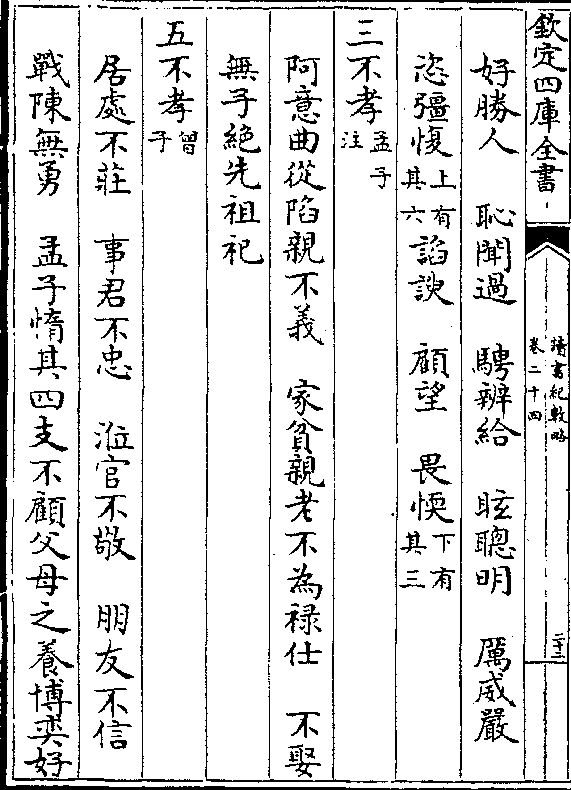 欽定四庫全書
讀書紀數略
卷二十四
二十三
好勝人 恥聞過 騁辨給 眩聰明 厲威嚴
恣彊愎上有其六 諂諛 顧望 畏愞下有其三
三不孝孟子注
阿意曲從陷親不義 家貧親老不為祿仕 不娶
無子絕先祖祀
五不孝曾子
居處不莊 事君不忠 涖官不敬 朋友不信
戰陳無勇 孟子惰其四支不顧父母之養博奕好